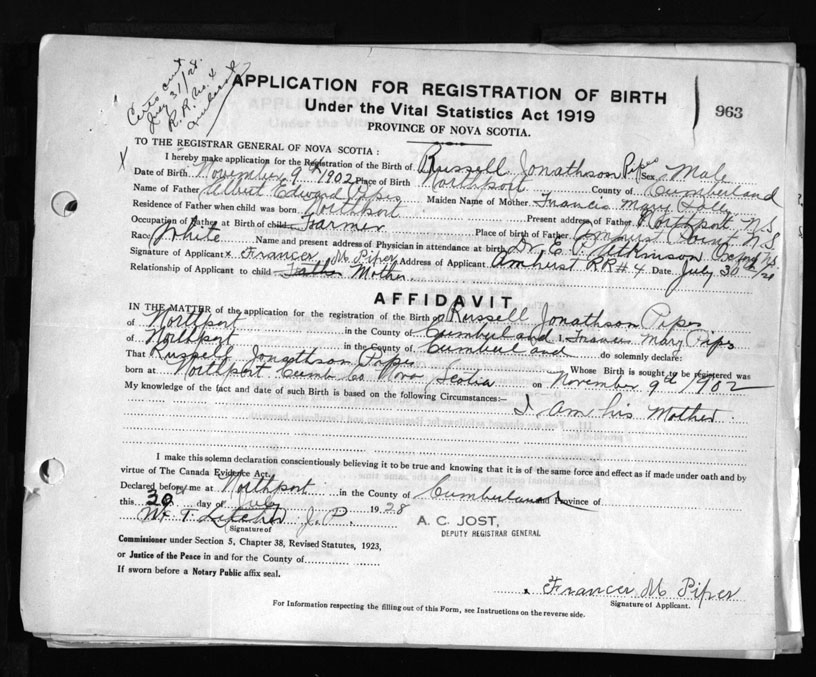 Certs cut
July 31/28
R.R. No. 4
Amherst
APPLICATION FOR REGISTRATION OF BIRTH
Under the Vital Statistics Act 1919
963
PROVINCE OF NOVA SCOTIA.
TO THE REGISTRAR GENERAL OF NOVA SCOTIA:
I hereby make application for the Registration of the Birth of Russell Jonathson Pipes Sex Male
Date of Birth November 9th 1902 Place of Birth Northport County of Cumberland
Name of Father Albert Edward Pipes Maiden Name of Mother Francis Mary
Residence of Father when child was born Northport Present address of Father Northport N.S.
Occupation of Father at Birth of child Farmer Place of birth of Father Point N.S
Race White Name and present address of Physician in attendance at birth Dr. E. Atkinson N.S
Signature of Applicant x Frances M Pipes Address of Applicant Amherst RR # 4 Date July 30th/28
Relationship of Applicant to child Father Mother
AFFIDAVIT
IN THE MATTER of the application for the registration of the Birth of Russell Jonathson Pipes
of Northport in the County of Cumberland I, Francis Mary Pipes
of Northport in the County of Cumberland do solemnly declare:
That Russell Jonathson Pipes Whose Birth is sought to be registered was
born at Northport Cumb Co Nova Scotia on November 9th 1902
My knowledge of the fact and date of such Birth is based on the following Circumstances:—
I am his Mother
I make this solemn declaration conscientiously believing it to be true and knowing that it is of the same force and effect as if made under oath and by
virtue of The Canada Evidence Act.
Declared before me at Northport in the County of Cumberland Province of
this 30th day of July 1928
W. T. J.P.
A. C. JOST,
Signature of
DEPUTY REGISTRAR GENERAL
Commissioner under Section 5, Chapter 38, Revised Statutes, 1923,
or Justice of the Peace in and for the County of
If sworn before a Notary Public affix seal.
x Frances M Pipes
Signature of Applicant.
For Information respecting the filling out of this Form, see Instructions on the reverse side.